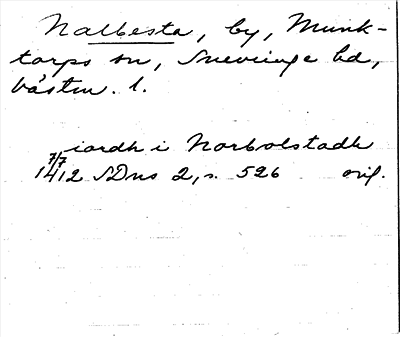 Nalbesta, by, Munk-
torps sn, Snevringe hd,
Västm. l.
iordh i Norbolstadh
7/7 1412 SDns 2, s. 526 orig.